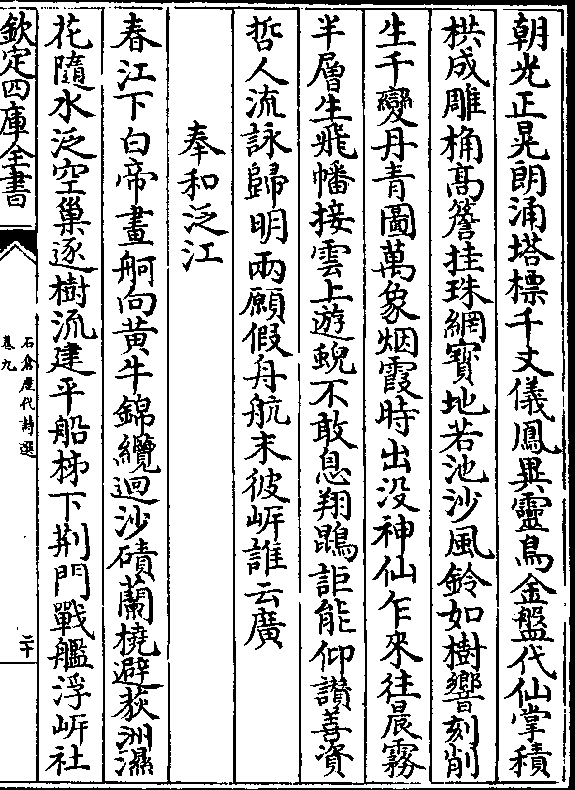 朝光正晃朗涌塔標千丈儀鳳異靈鳥金盤代仙掌積
栱成雕桷髙簷挂珠網寳地若池沙風鈴如樹響刻削
生千變丹青圖萬象烟霞時出没神仙乍來往晨霧
半層生飛幡接雲上遊蜺不敢息翔鵾詎能仰讃善資
哲人流詠歸明兩願假舟航末彼㟁誰云廣
奉和泛江
春江下白帝畫舸向黄牛錦纜迴沙磧蘭橈避荻洲濕
花隨水泛空巢逐樹流建平船柹下荆門戰艦浮㟁社
欽定四庫全書
石倉歴代詩選
卷九
二十